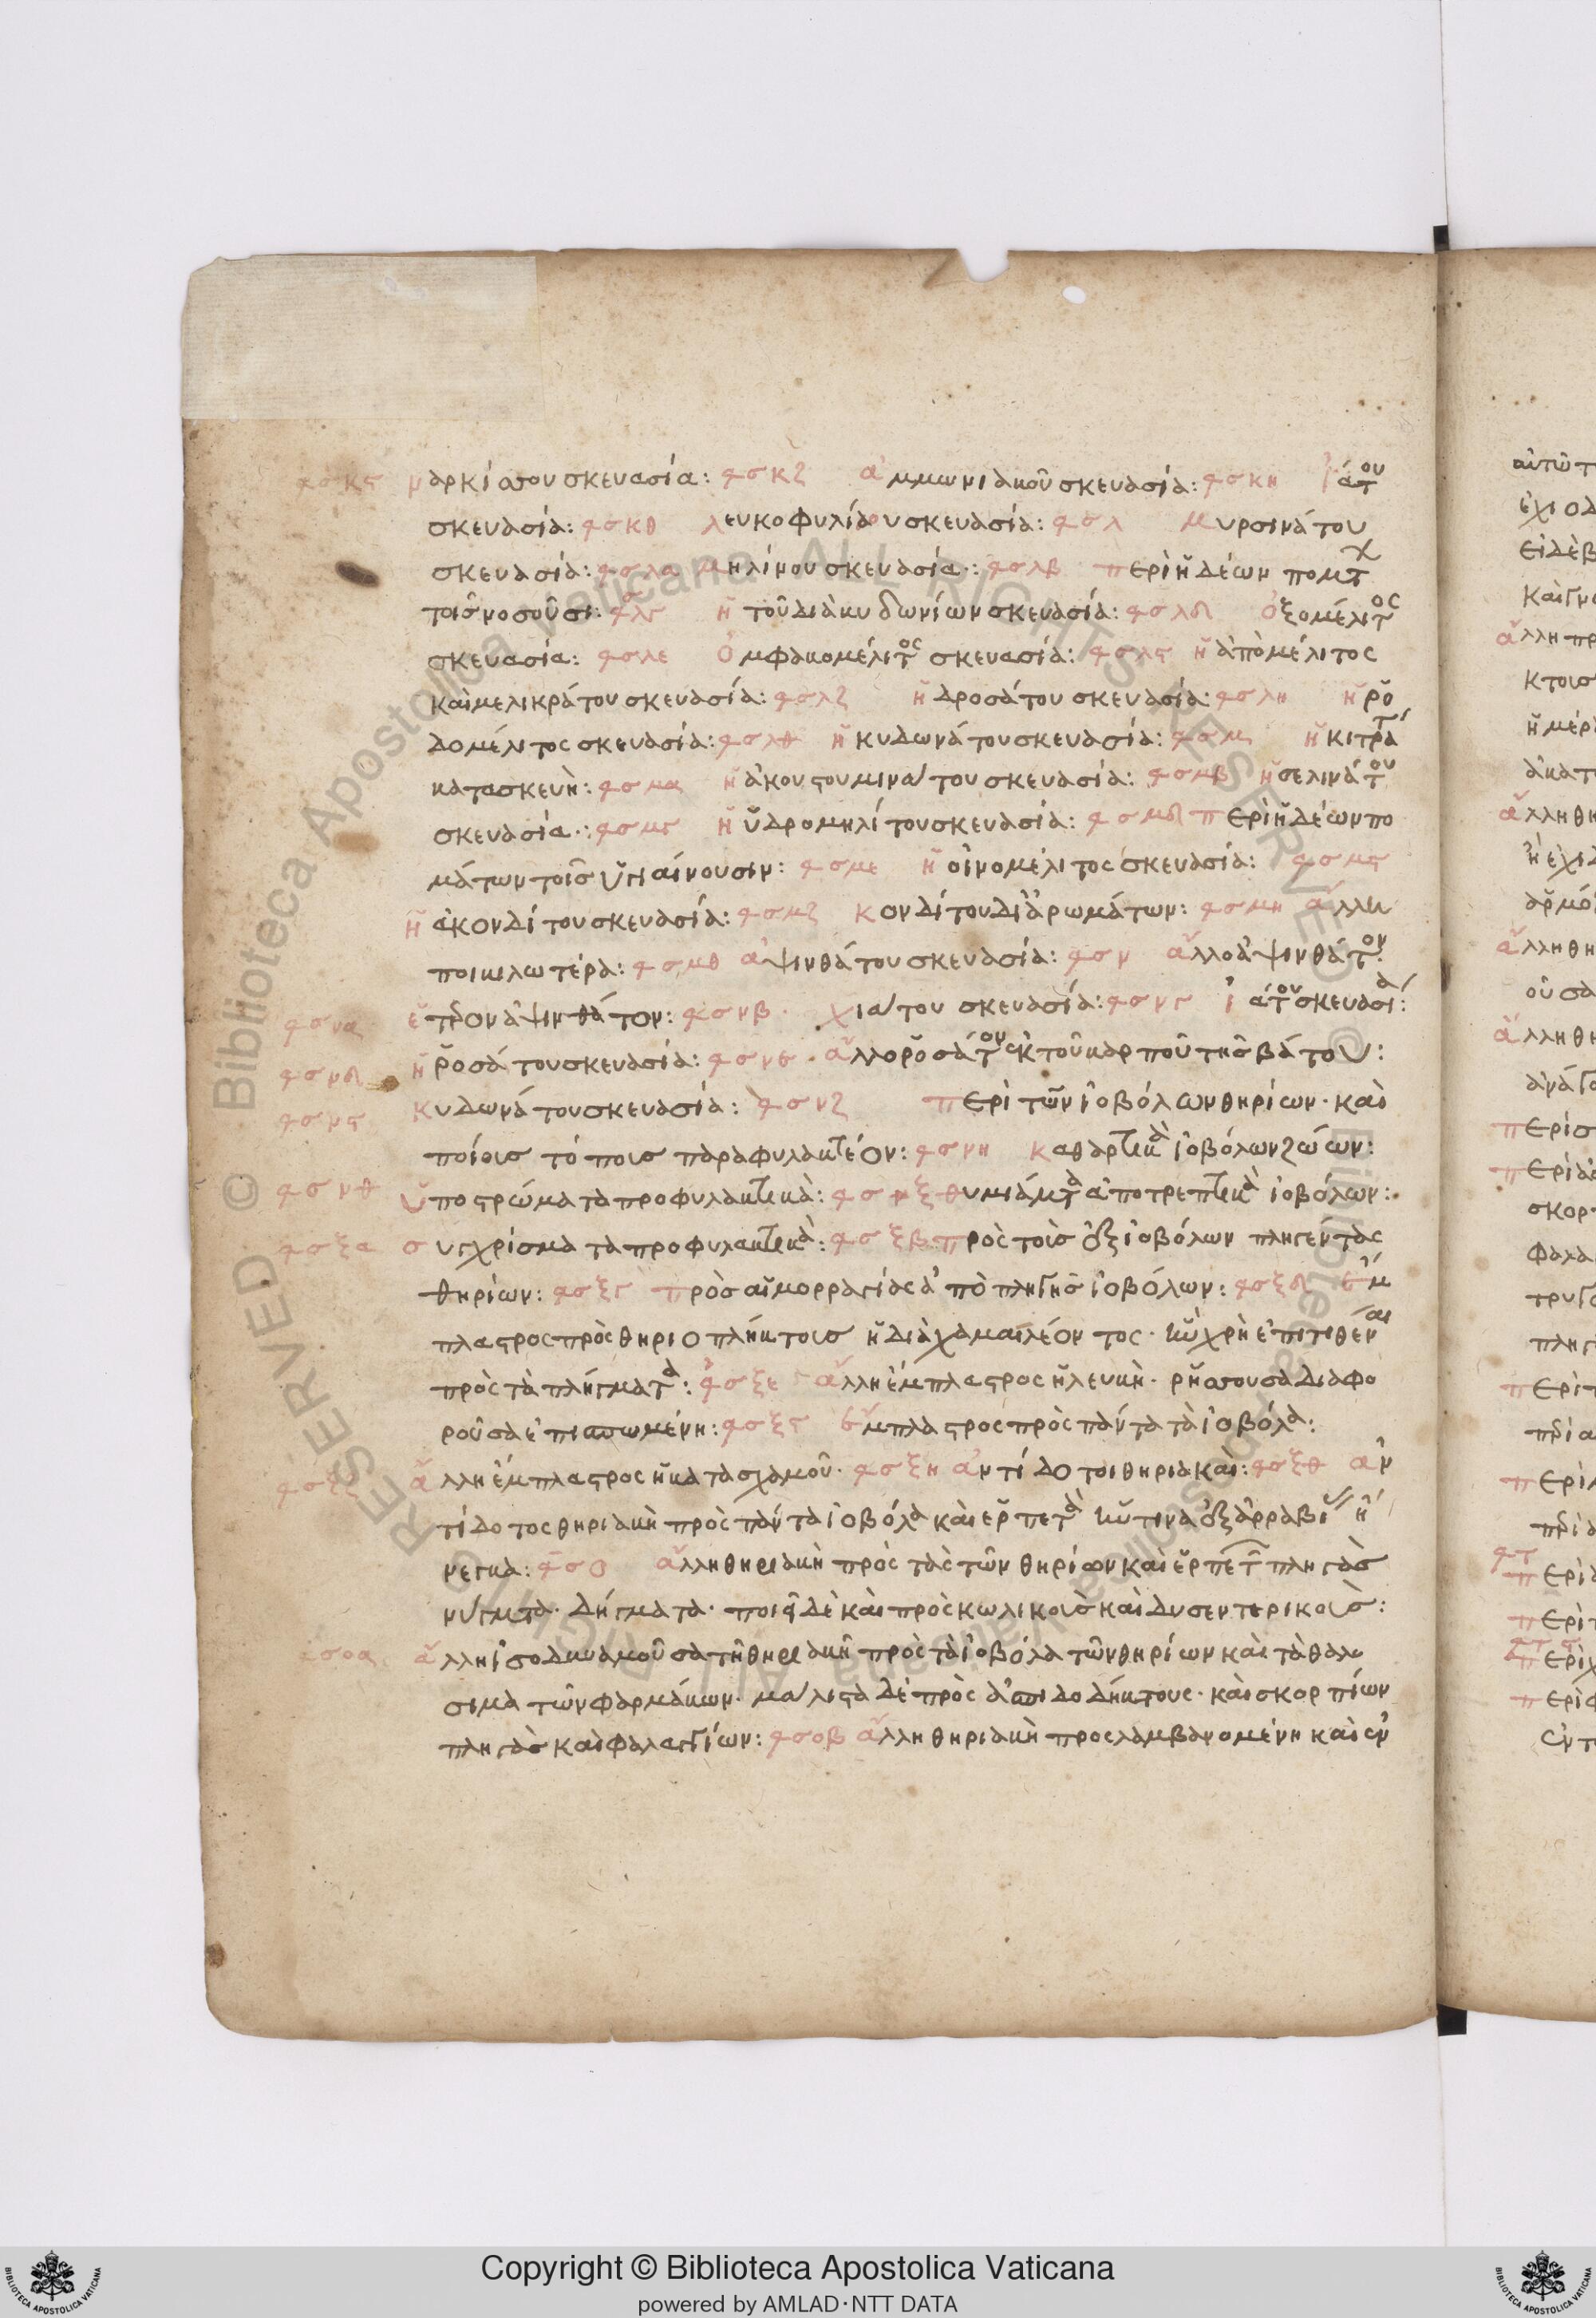 φσκϛ ναρκίσσου σκευασία: φσκζ ἀμμωνιακοῦ σκευασία: φσκη ἰάτου
σκευασία: φσκθ λευκοφυλίνου σκευασία: φσλ μυρσινάτου
σκευασία: φσλα μηλίνου σκευασία: φσλβ περὶ ἡδέων πομτ
τοῖς νοσοῦσι: φσλγ ἡ τοῦ διὰ κυδωνίων σκευασία: φσλδ ὀξομέλιτος
σκευασία: φσλε ὀμφακομέλιτος σκευασία: φσλϛ ἡ ἀπὸ μέλιτος
καὶ μελικράτου σκευασία: φσλζ ἡ δροσάτου σκευασία: φσλη ἡ ῥο
δομέλιτος σκευασία: φσλθ ἡ κυδωνάτου σκευασία: φσμ ἡ κιτράτ
κατασκευὴ: φσμα ἡ ἀκουτουμινάτου σκευασία: φσμβ ἡ σελινάτου
σκευασία: φσμγ ἡ ὑδρομηλίτου σκευασία: φσμδ περὶ ἡδέων πο
μάτων τοῖς ὑγιαίνουσιν: φσμε ἡ οἰνομέλιτος σκευασία: φσμϛ
ἡ ἀκονδίτου σκευασία: φσμζ κονδίτου δι ἀρωμάτων: φσμη ἄλλη
ποικιλωτέρα: φσμθ ἀψινθάτου σκευασία: φσν ἄλλο ἀψινθάτον
φσνα ἕτερον ἀψινθάτον: φσνβ χιάτου σκευασία: φσνγ ἰάτου σκευασία:
φσνδ ἡ ῥοσάτου σκευασία: φσνε ἄλλο ῥοσάτον ἐκ τοῦ καρποῦ τῆς βάτου:
φσνϛ κυδωνάτου σκευασία: φσνζ περὶ τῶν ἰοβόλων θηρίων· καὶ
ποίοις τόποις παραφυλακτέον: φσνη καθαρτικὰ ἰοβόλων ζώων:
φσνθ ὑποστρώματα προφυλακτικὰ: φσξ θυμιάματα ἀποτρεπτικὰ ἰοβόλων:
φσξα συγχρίσματα προφυλακτικὰ: φσξβ πρὸς τοὺς ἐξ ἰοβόλων πληγέντας
θηρίων: φσξγ πρὸς αἱμορραγίας ἀπὸ πληγῆς ἰοβόλων: φσξδ ἔμ
πλαστρος πρὸς θηριοπλήκτοις ἡ διὰ χαμαιλέοντος· ἣν χρὴ ἐπιτιθέναι
πρὸς τὰ πλήγματα: φσξε ἄλλη ἔμπλαστρος ἡ λευκὴ· ῥήσσουσα διαφο
ροῦσα ἐπισπωμένη: φσξϛ ἔμπλαστρος πρὸς πάντα τὰ ἰοβόλα:
φσξζ ἄλλη ἔμπλαστρος ἡ κατασχαμοῦ· φσξη ἀντίδοτοι θηριακαὶ: φσξθ ἀν
τίδοτος θηριακὴ πρὸς πάντα ἰοβόλα καὶ ἑρπετὰ ἥν τινα ἐξ ἀρραβί ἤ
νεγκα: φσο ἄλλη θηριακὴ πρὸς τὰς τῶν θηρίων καὶ ἑρπετῶν πληγὰς
νύγματα· δήγματα· ποιεῖ δὲ καὶ πρὸς κωλικοὺς καὶ δυσεντερικοὺς:
φσοα ἄλλη ἰσοδυναμοῦσα τῇ θηριακῇ πρὸς τὰ ἰοβόλα τῶν θηρίων καὶ τὰ θανά
σιμα τῶν φαρμάκων· μάλιστα δὲ πρὸς ἀσπιδοδήκτους· καὶ σκορπίων
πληγὰς καὶ φαλαγγίων: φσοβ ἄλλη θηριακὴ προσλαμβανομένη καὶ ἐν
Copyright © Biblioteca Apostolica Vaticana
powered by AMLAD·NTT DATA